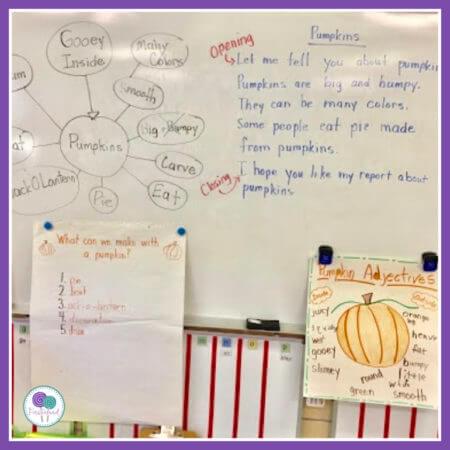 Gooey
Inside
Many
Colors
Smooth
Big + Bumpy
Pumpkins
Carve
Eat
Pie
Jack O Lantern
um
at
Pumpkins
Opening
Let me tell you about pumpkin
Pumpkins are big and bumpy.
They can be many colors.
Some people eat pie made
from pumpkins.
Closing
I hope you like my report about
pumpkins
What can we make with
a pumpkin?
1. pie
2. boat
3. jack-o-lantern
4. decoration
5.
Pumpkin Adjectives
Inside
Outside
juicy
orange
big
heavy
wet
fat
gooey
bumpy
slimey
little
round
wide
green
smooth
Firstieland